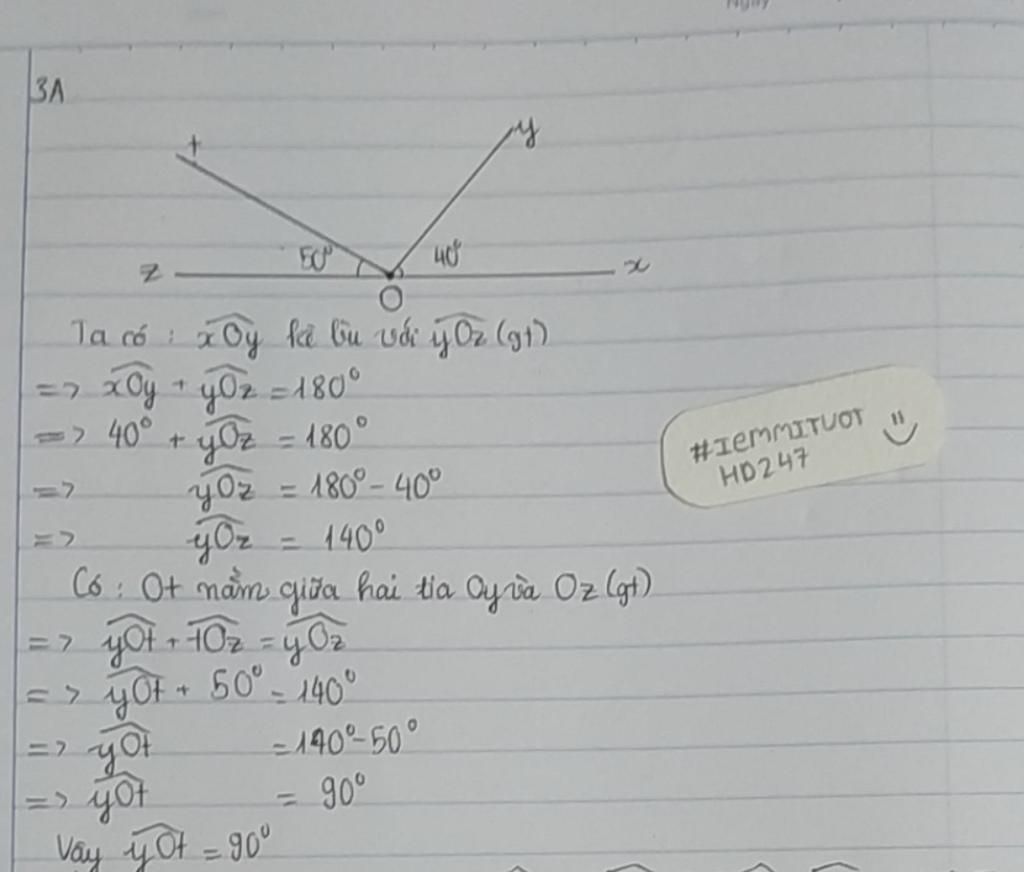 Ngày
3A
t
y
50°
40°
z
x
O
Ta có : xOy kề bù với yOz (gt)
=> xOy + yOz = 180°
=> 40° + yOz = 180°
=> yOz = 180° - 40°
=> yOz = 140°
#IEMMITUOT
HD247
Có : Ot nằm giữa hai tia Oy và Oz (gt)
=> yOt + tOz = yOz
=> yOt + 50° = 140°
=> yOt = 140° - 50°
=> yOt = 90°
Vây yOt = 90°